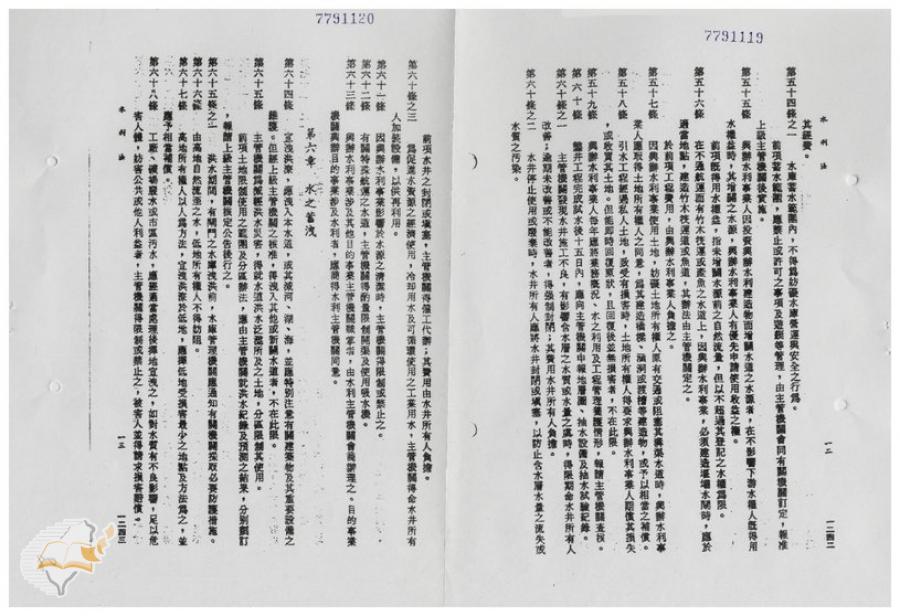 7791119
水利法
一二
一二四二
其經費。
第五十四條之一　水庫蓄水範圍內，不得為妨礙水庫營運與安全之行為。
前項蓄水範圍，應禁止或許可之事項及遊艇等管理，由主管機關會同有關機關訂定，報准
上級主管機關後實施。
第五十五條　興辦水利事業人因投資興辦水利建造物而增闢水道之水源者，在不影響下游水權人既得用
水權益時，其增闢之水源，興辦水利事業人有優先申請使用收益之權。
前項既得用水權益，指未增闢水源前之自然流量，但以不超過其登記之水權為限。
第五十六條　在不通航運而有竹木筏運或產魚之水道上，因興辦水利事業，必須建造堰壩水閘時，應於
適當地點，建造竹木筏運道或魚道，其辦法由主管機關定之。
於前項工程費用，由興辦水利事業人負擔之。
第五十七條　因興辦水利事業使用土地，妨礙土地所有權人原有交通或阻塞其溝渠水道時，興辦水利事
業人應取得土地所有權人之同意，為其建造橋樑、涵洞或渡槽等建造物，或予以相當之補償。
第五十八條　引水工程經過私人土地，致受有損害時，土地所有權人得要求興辦水利事業人賠償其損失
，或收買其土地。但能即時回復原狀，且回復後並無損害者，不在此限。
第五十九條　興辦水利事業人每年應將業務概況、水之利用及工程管理養護情形，報請主管機關查核。
第六十條　鑿井工程完成或試水後十五日內，應向主管機關申報地層圖、抽水設備及抽水試驗紀錄。
第六十條之一　主管機關發現水井施工不良，有影響含水層之水質或水量之虞時，得限期命水井所有人
改善；逾期未改善或不能改善者，得強制封閉；其費用由水井所有人負擔。
第六十條之二　水井停止使用或廢棄時，水井所有人應將水井封閉或填塞，以防止含水層水量之流失或
水質之污染。
7791120
前項水井之封閉或填塞，主管機關得僱工代辦；其費用由水井所有人負擔。
第六十條之三　為促進水資源之經濟使用，冷却用水及可循環使用之工業用水，主管機關得命水井所有
人加裝設備，以供再利用。
第六十一條　因興辦水利事業影響於水源之清潔時，主管機關得限制或禁止之。
第六十二條　有關特殊航運之水道，主管機關得酌量限制開渠及使用吸水機。
第六十三條　興辦水利事業涉及其他目的事業主管機關職掌者，由水利主管機關會商辦理之。目的事業
機關興辦目的事業涉及水利者，應將得水利主管機關同意。
第六章　水之蓄洩
第六十四條　宣洩洪潦，應洩入本水道，或其減河、湖、海，並應特別注意有關建築物及其重要設備之
維護。但經上級主管機關之核准，得洩入其他或新闢水道者，不在此限。
第六十五條　主管機關為減輕洪水災害，得就水道洪水泛濫所及之土地，分區限制其使用。
前項土地限制使用之範圍及分區辦法，應由主管機關就洪水紀錄及預測之結果，分別劃訂
，報請上級主管機關核定公告後行之。
第六十五條之一　洪水期間，有閘門之水庫洩洪前，水庫管理機關應通知有關機關採取必要防護措施。
第六十六條　由高地自然流至之水，低地所有權人不得妨阻。
第六十七條　高地所有權人以人為方法，宣洩洪潦於低地，應擇低地受損害最少之地點及方法為之，並
應予相當補償。
第六十八條　工廠、礦場廢水或市區污水，應經適當處理後擇地宣洩之，如對水質有不良影響，足以危
害人體，妨害公共或他人利益者，主管機關得限制或禁止之，被害人並得請求損害賠償。
水利法
一三
一二四三